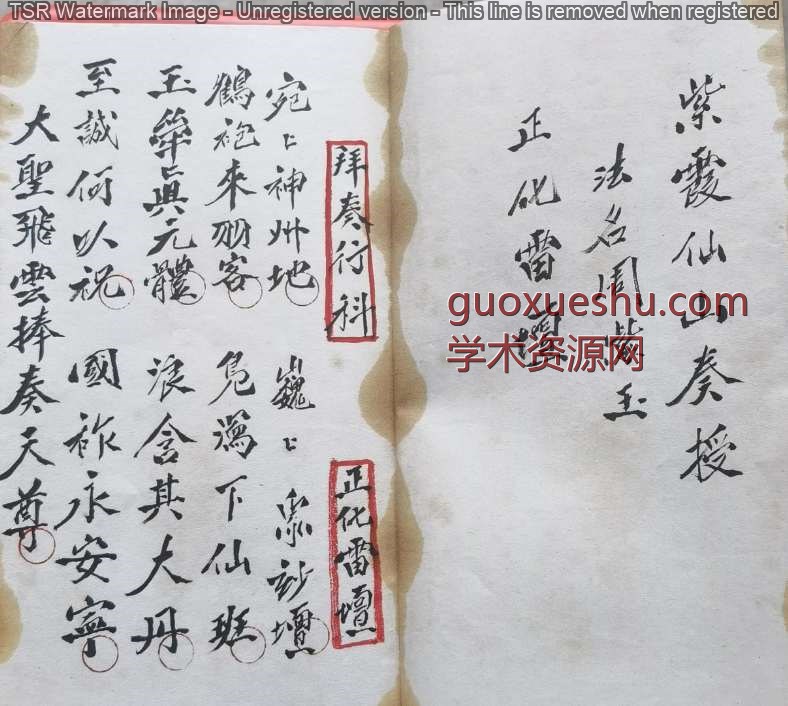 TSR Watermark Image - Unregistered version - This line is removed when registered
紫霞仙山奏授
法名周玉
正化雷壇
guoxueshu.com
学术资源网
拜奏行科
正化雷壇
宛〻神州地
巍〻眾妙壇
鶴袍來羽客
鳧舄下仙班
玉真元體
浪含其大丹
至誠何以祝
國祚永安寧
大聖飛雲捧奏天尊